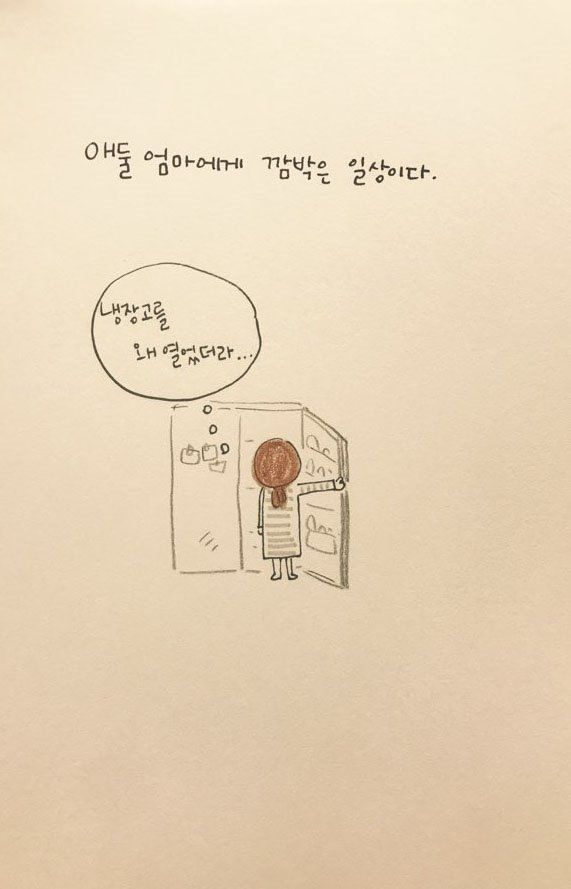 애둘 엄마에게 깜박은 일상이다.
냉장고를
왜 열었더라...